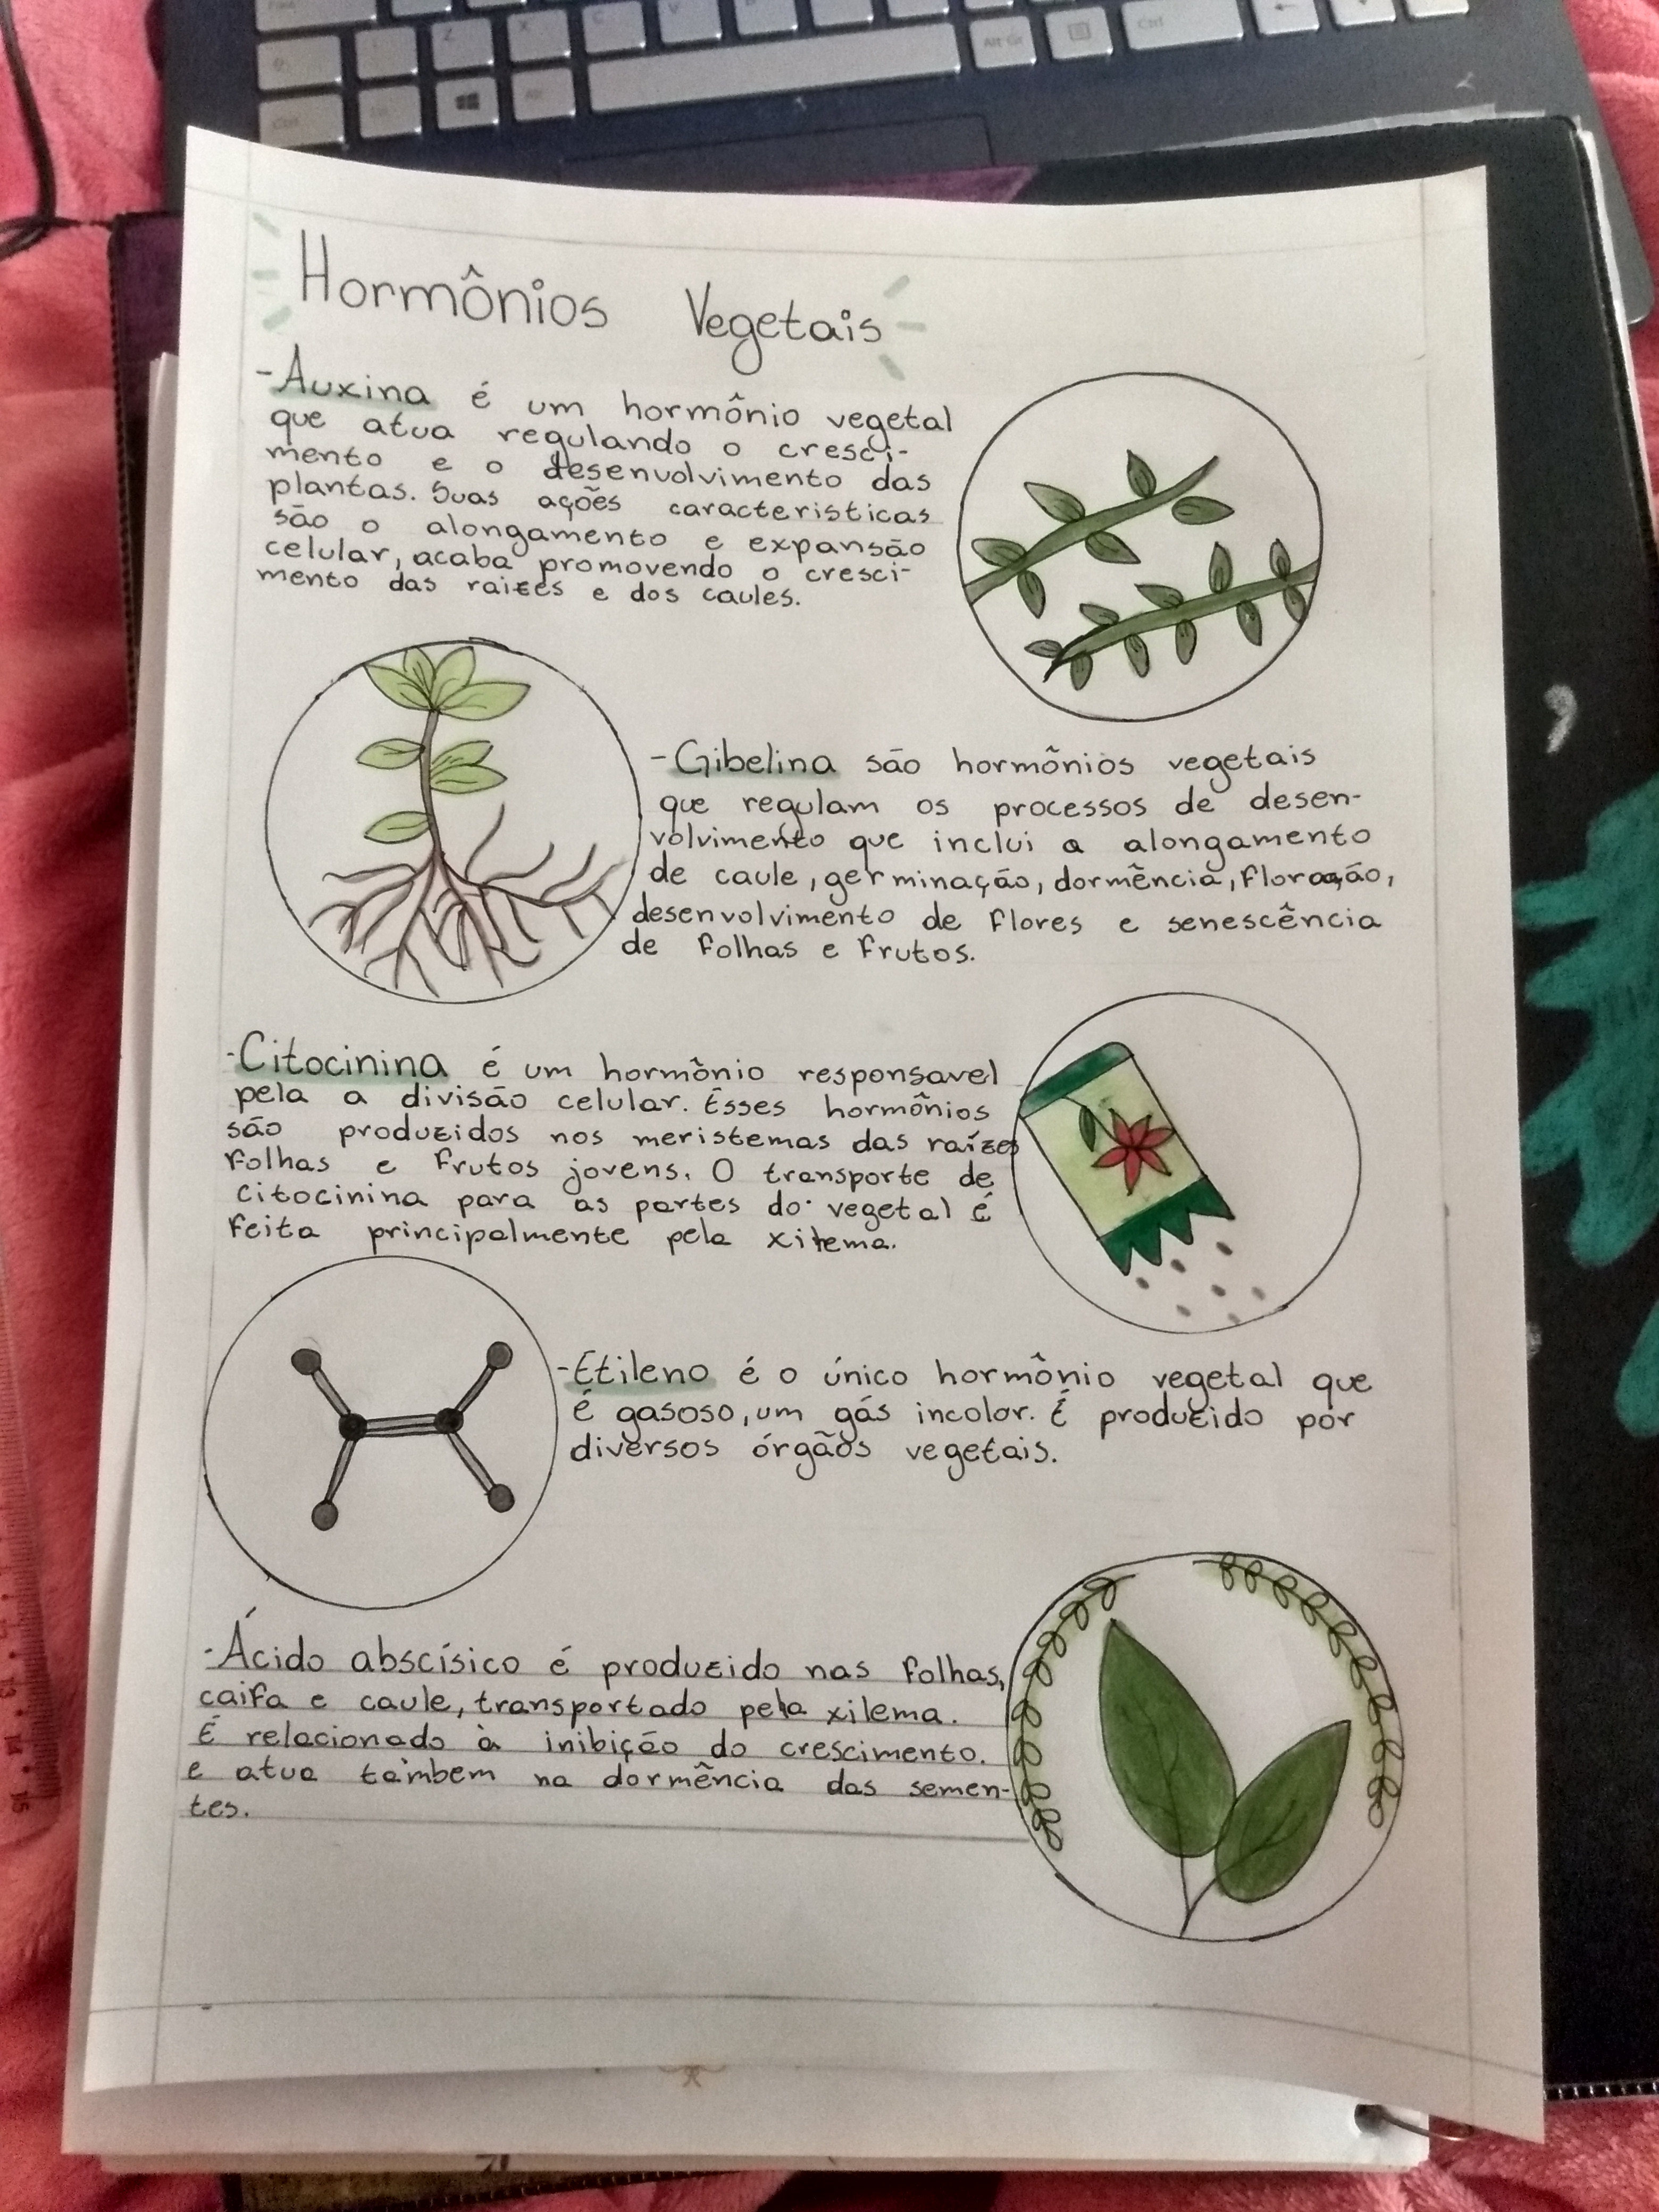 Hormônios Vegetais
-Auxina é um hormônio vegetal
que atua regulando o cresci-
mento e o desenvolvimento das
plantas. Suas ações caracteristicas
são o alongamento e expansão
celular, acaba promovendo o cresci-
mento das raizes e dos caules.
-Gibelina são hormônios vegetais
que regulam os processos de desen-
volvimento que inclui a alongamento
de caule, germinação, dormência, floração,
desenvolvimento de flores e senescência
de folhas e frutos.
-Citocinina é um hormônio responsavel
pela a divisão celular. Esses hormônios
são produzidos nos meristemas das raízes
folhas e frutos jovens. O transporte de
citocinina para as partes do vegetal é
feita principalmente pela xilema.
-Etileno é o único hormônio vegetal que
é gasoso, um gás incolor. É produzido por
diversos órgãos vegetais.
-Ácido abscísico é produzido nas folhas,
caifa e caule, transportado pela xilema.
É relacionado à inibição do crescimento.
e atua tambem na dormência das semen-
tes.
Alt Gr
Ctrl
13
14
15